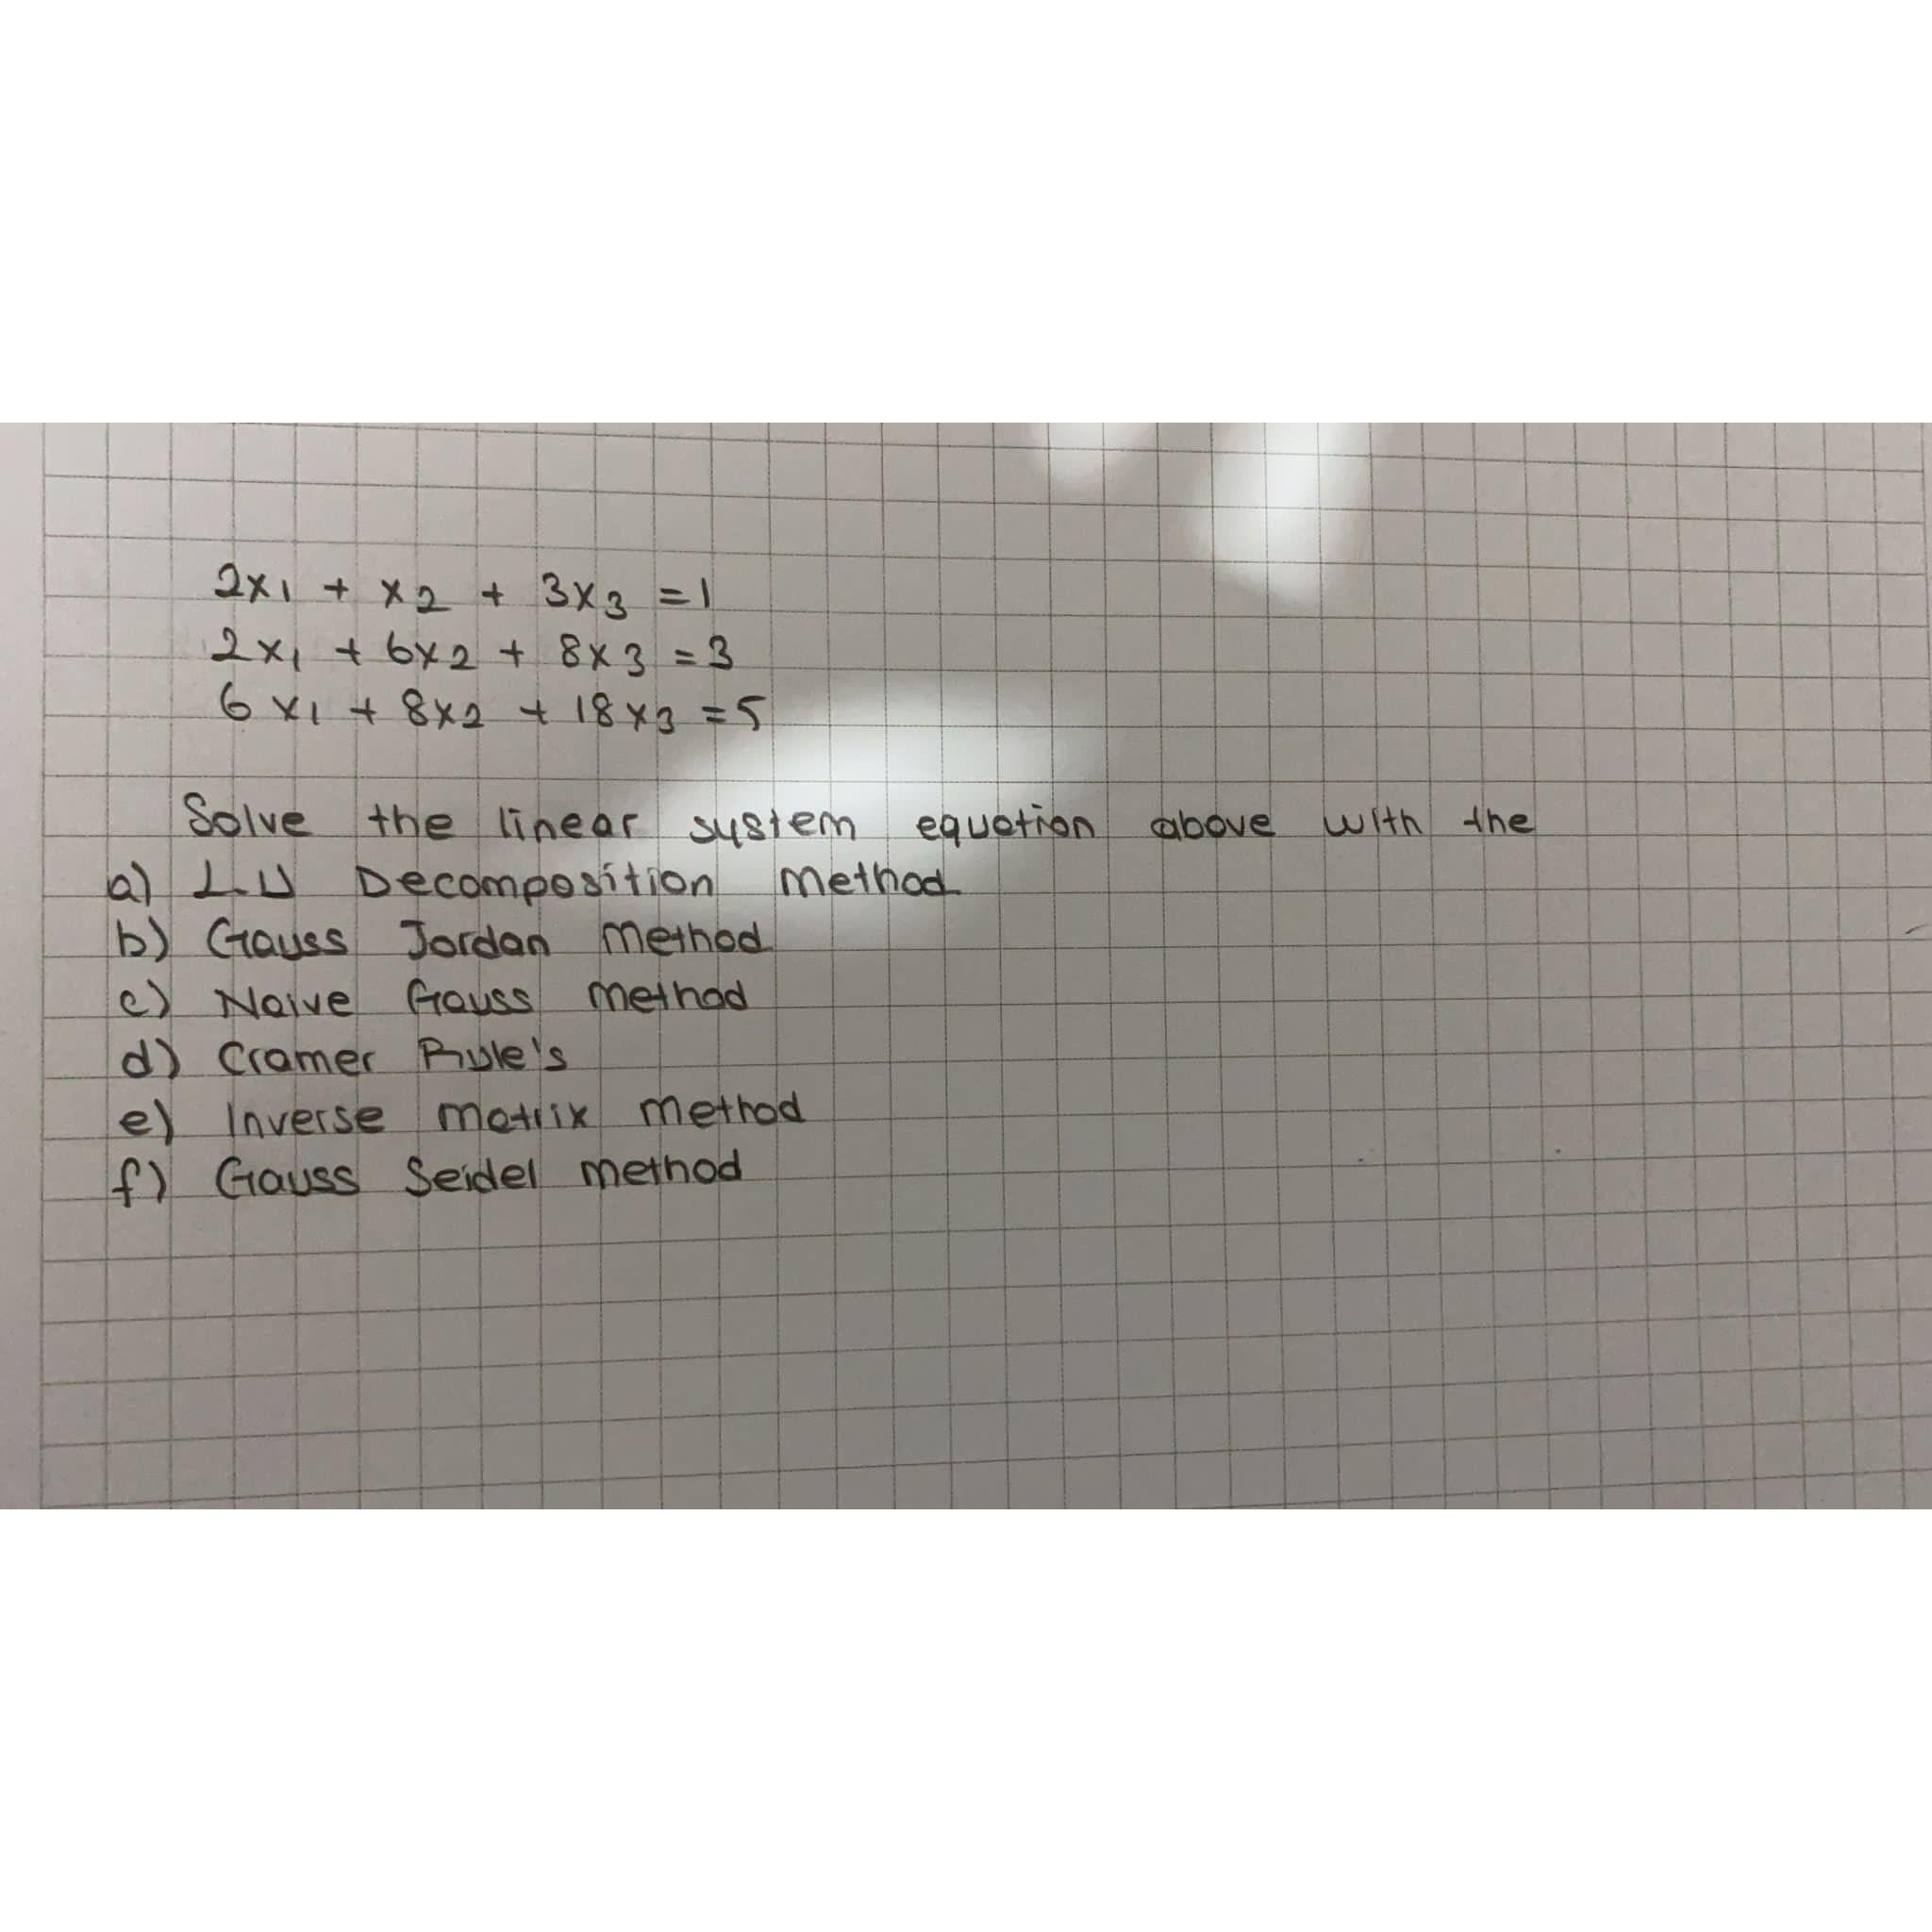 2x1 + x2 + 3x3 = 1
2x1 + 6x2 + 8x3 = 3
6x1 + 8x2 + 18x3 = 5
Solve the linear system equation above with the
a) LU Decomposition Method
b) Gauss Jordan Method
c) Naive Gauss Method
d) Cramer Rule's
e) Inverse Matrix Method
f) Gauss Seidel Method